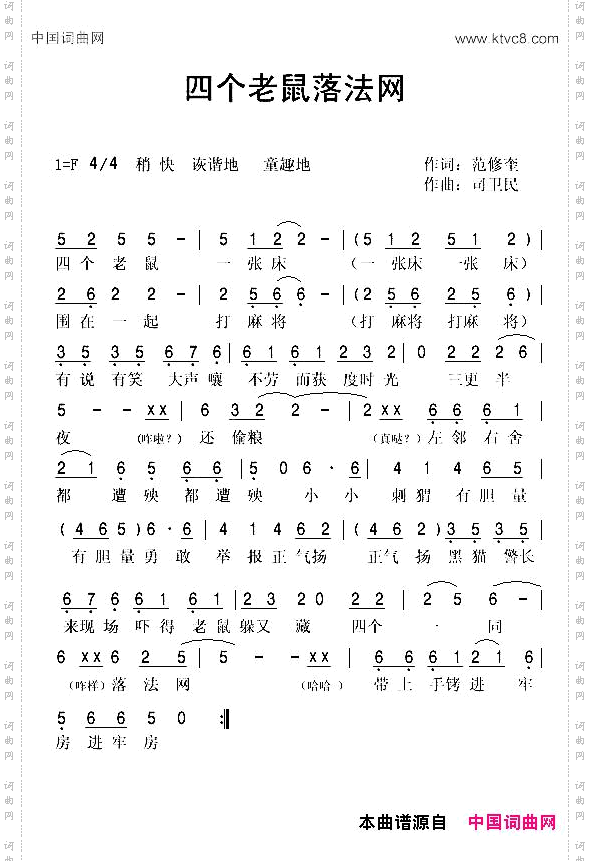 中国词曲网 www.ktvc8.com
四个老鼠落法网
1=F 4/4 稍快 诙谐地 童趣地 作词：范修奎
作曲：司卫民
5 2 5 5 - | 5 1 2 2 - | (5 1 2 5 1 2) |
四个老鼠 一张床 （一张床 一张床）
2 6 2 2 - | 2 5 6 6 - | (2 6 6 2 5 6) |
围在一起 打麻将 （打麻将 打麻将）
3 5 3 5 6 7 6 | 6 1 6 1 2 3 2 | 0 2 2 2 6 |
有说有笑 大声嚷 不劳而获 度时光 三更半
5 - - x x | 6 3 2 2 - | 2 x x 6 6 6 1 |
夜 （咋啦？）还偷粮 （真哒？）左邻右舍
2 1 6 5 6 6 | 5 0 6 · 6 | 1 4 6 5 |
都遭殃都遭殃 小小刺猬有胆量
(4 6 5) 6 · 6 | 4 2 1 4 6 2 | (4 6 2) 3 5 3 5 |
有胆量勇敢 举报正气扬 正气扬黑猫警长
6 7 6 6 1 6 1 | 2 3 2 0 2 2 | 2 5 6 - |
来现场吓得老鼠躲又藏 四个一同
6 x x 6 2 5 | 5 - - x x | 6 6 6 1 2 1 6 |
（咋样）落法网 （哈哈）带上手铐进牢
5 6 6 5 0 :||
房进牢房
本曲谱源自 中国词曲网